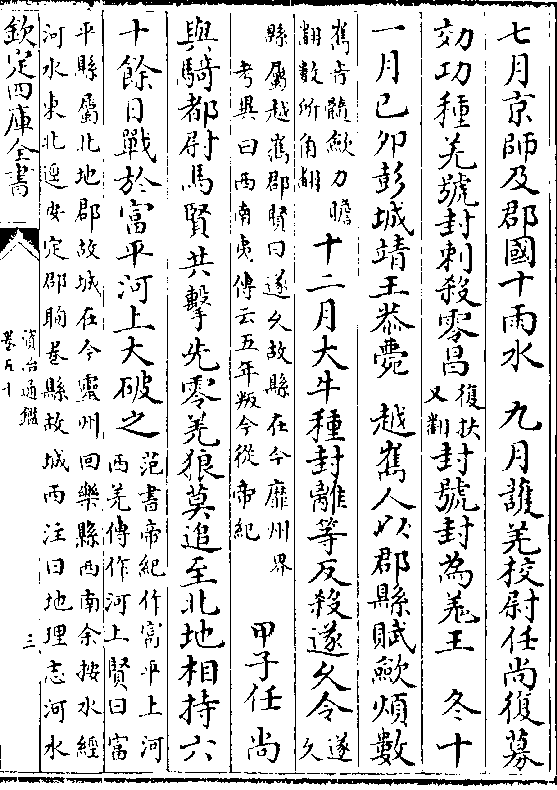 七月京師及郡國十雨水　九月護羌校尉任尚復募
効功種羌號封刺殺零昌
復扶
又翻
封號封為羌王　冬十
一月己卯彭城靖王恭薨　越嶲人以郡縣賦歛煩數
嶲音髓歛力贍
翻數所角翻
十二月大牛種封離等反殺遂久令
遂
久
縣屬越嶲郡賢曰遂久故縣在今靡州界
考異曰西南夷傳云五年叛今從帝紀
甲子任尚
與騎都尉馬賢共擊先零羌狼莫追至北地相持六
十餘日戰於富平河上大破之
范書帝紀作富平上河
西羌傳作河上賢曰富
平縣屬北地郡故城在今靈州回樂縣西南余按水經
河水東北逕安定郡眴卷縣故城西注曰地理志河水
欽定四庫全書
資治通鑑
卷五十
三